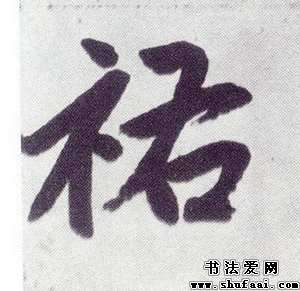 祐
书法爱网
www.shufaai.com